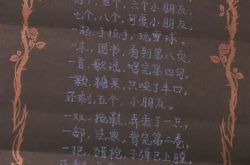 个，五个，六个小朋友，
七个，八个，可爱小朋友，
一起，手拉手，玩雪球。
一本，图书，看到第八页，
一首，歌谣，唱完第四句，
一颗，糖果，只咬了半口，
还剩，五个，小朋友。
一双，拖鞋，弄丢了一只，
一部，法典，背完第一卷，
一把，猎枪，